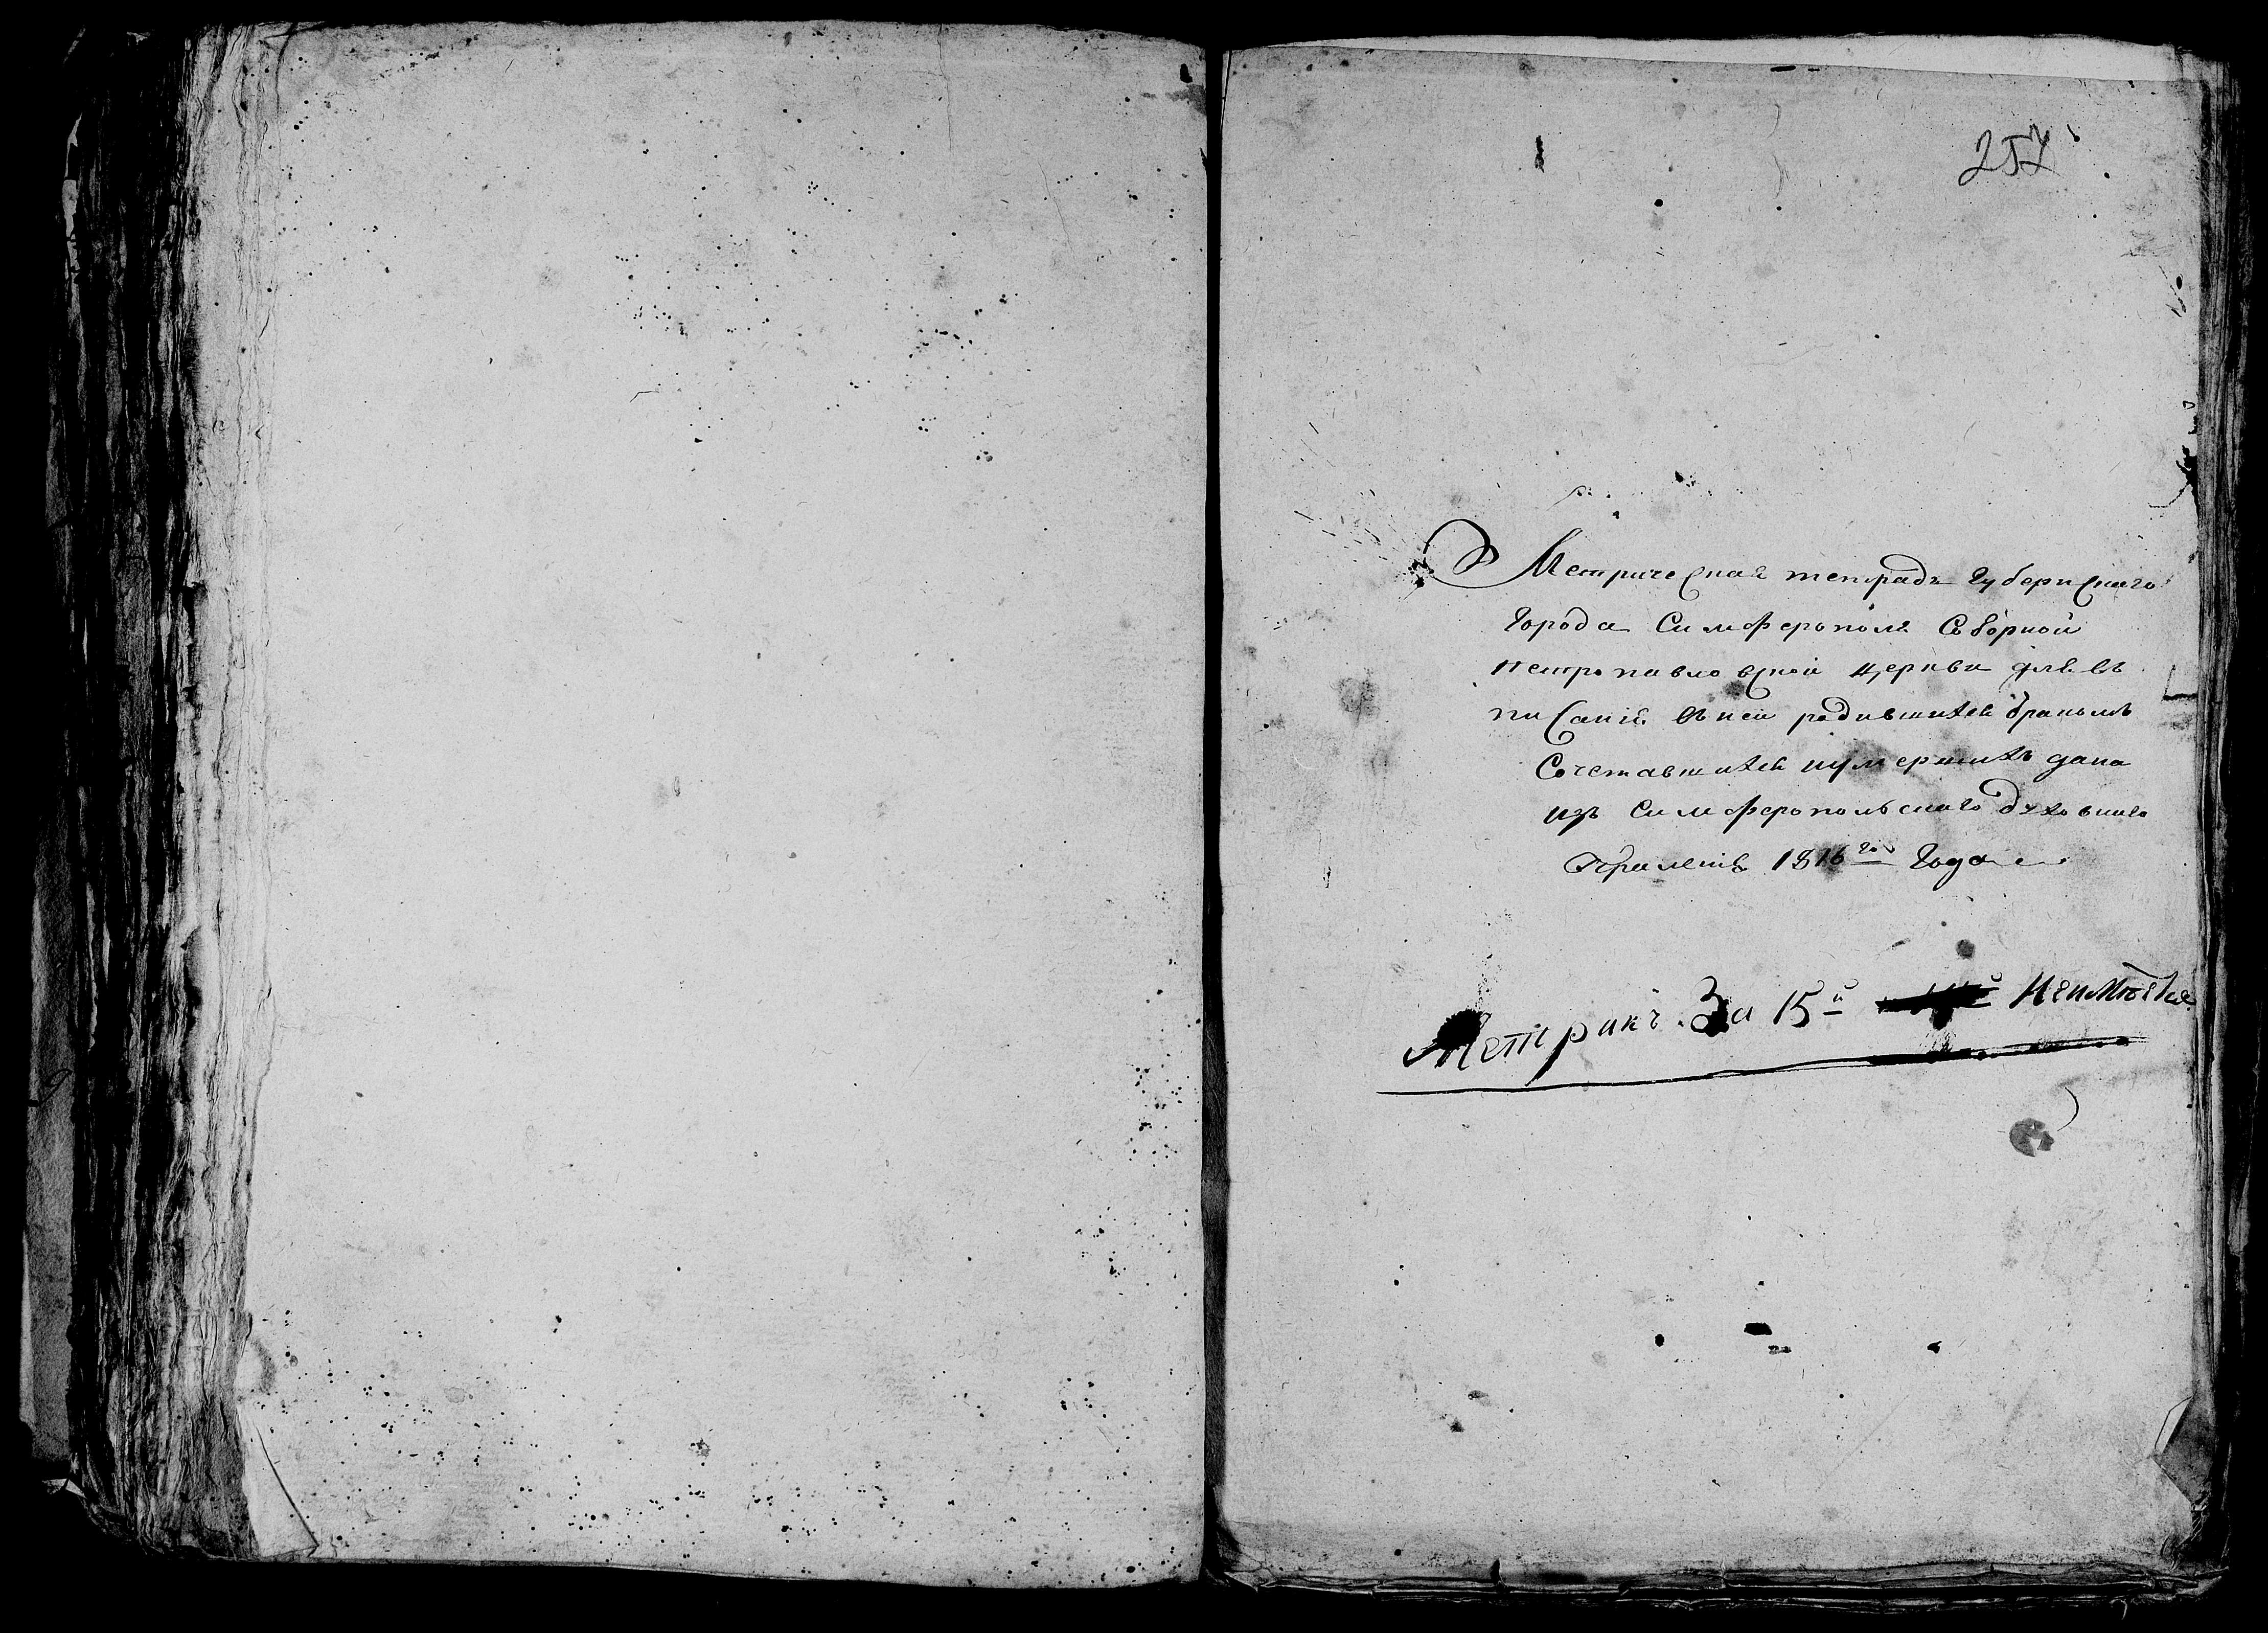 257
Метрическая тетрадь губернскаго
города Симферополя Соборной
петропавловской церкви для въ
писанія въ ней родившихся бракомъ
Сочетавшихся и умершихъ дана
изъ Симферопольскаго духовнаго
Правленія 1816го года
Метрикъ За 15й